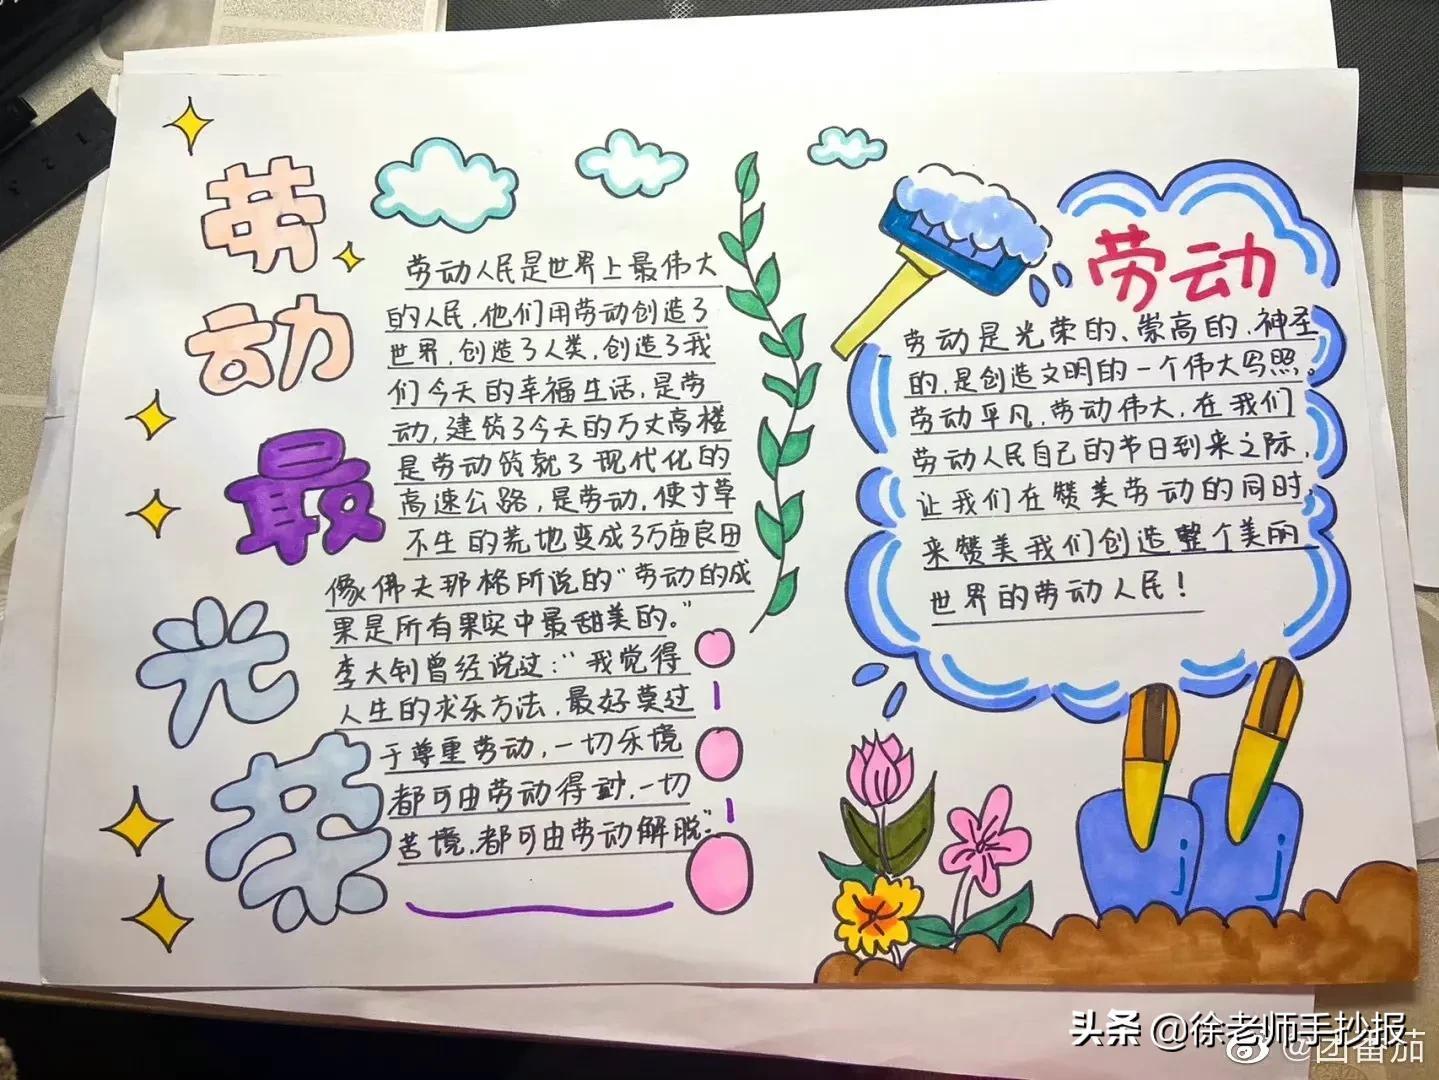 劳
动
最
光
荣
劳动人民是世界上最伟大
的人民,他们用劳动创造了
世界,创造了人类,创造了我
们今天的幸福生活,是劳
动,建筑了今天的万丈高楼
是劳动筑就了现代化的
高速公路,是劳动,使寸草
不生的荒地变成了万亩良田
像佛夫那格所说的“劳动的成
果是所有果实中最甜美的。”
李大钊曾经说过:“我觉得
人生的求乐方法,最好莫过
于尊重劳动,一切乐境
都可由劳动得到,一切
苦境,都可由劳动解脱”
劳动
劳动是光荣的、崇高的、神圣
的,是创造文明的一个伟大写照。
劳动平凡,劳动伟大,在我们
劳动人民自己的节日到来之际,
让我们在赞美劳动的同时,
来赞美我们创造整个美丽
世界的劳动人民!
头条 @徐老师手抄报
@团番茄